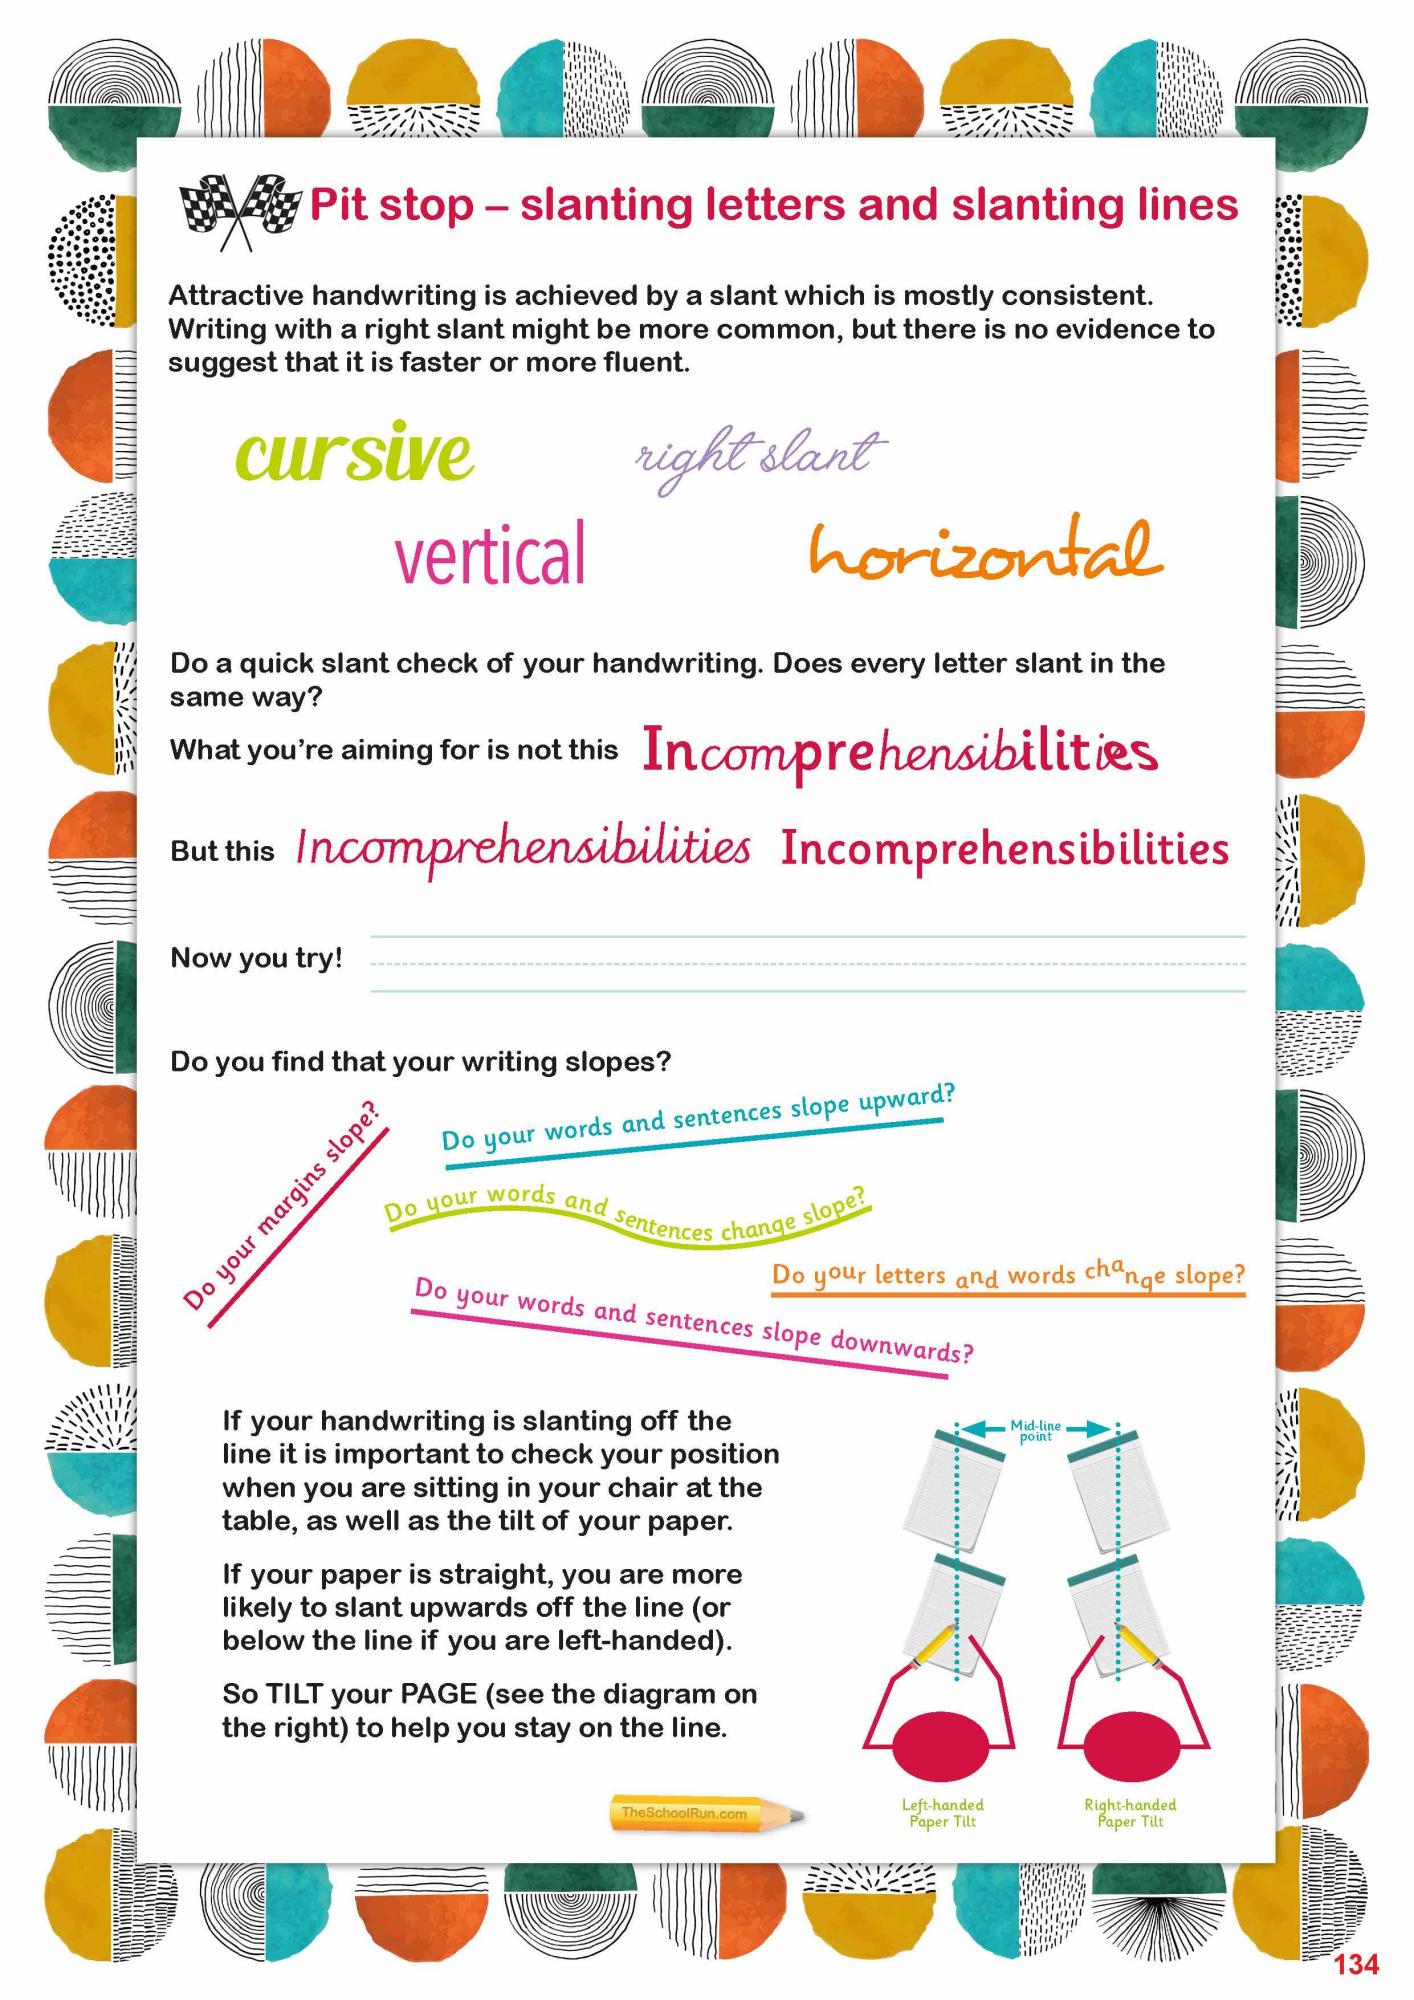 Pit stop – slanting letters and slanting lines
Attractive handwriting is achieved by a slant which is mostly consistent.
Writing with a right slant might be more common, but there is no evidence to
suggest that it is faster or more fluent.
cursive
right slant
vertical
horizontal
Do a quick slant check of your handwriting. Does every letter slant in the
same way?
What you're aiming for is not this Incomprehensibilities
But this Incomprehensibilities Incomprehensibilities
Now you try!
Do you find that your writing slopes?
Do your margins slope?
Do your words and sentences slope upward?
Do your words and sentences change slope?
Do your letters and words change slope?
Do your words and sentences slope downwards?
If your handwriting is slanting off the
line it is important to check your position
when you are sitting in your chair at the
table, as well as the tilt of your paper.
If your paper is straight, you are more
likely to slant upwards off the line (or
below the line if you are left-handed).
So TILT your PAGE (see the diagram on
the right) to help you stay on the line.
Mid-line
point
Left-handed
Paper Tilt
Right-handed
Paper Tilt
TheSchoolRun.com
134